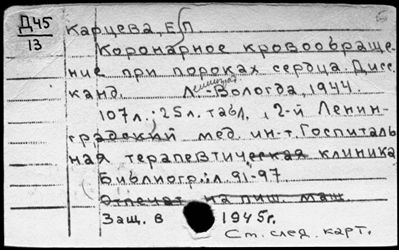 Д45
13
Карцева, Б П
Коронарное кровообраще-
ние при пороках сердца. Дисс.
канд. Л.-Вологда, 1944.
107л.; 25л. табл., 2-й Ленин-
градский мед. ин-т. Госпиталь
ная терапевтическая клиника
Библиогр.: л. 91-97
Отпечат. на пиш. маш.
Защ. в 1945г.
См. след. карт.